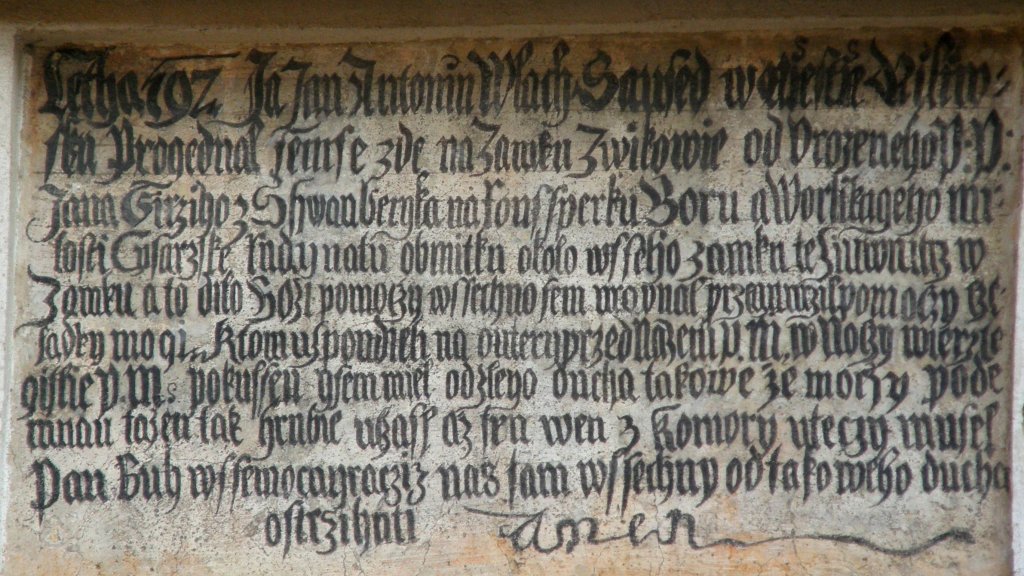 Letha 192 Ja Jan Antonin Wlach Saused w Miestie Ristw-
sku Progednal jsem se zde na Zamku Zwikowie od Vrozeneho P: P:
Jana Girziho z Shwanbergka na Ronssperku Boru a Worlikageho mi-
losti Cysarzske Rady na tu obmitku okolo wsseho zamku te Ziuwnitz w
Zamku a to dilo Bozi pomoczy wssechno sem w
pomoczy cze-
ladky mogi K tomu
na autery przed
P. M. w Noczy wierzte
gistie P. M: pokussenj gsem miel od zleho ducha takowe ze moczy pode
mnau lazen tak hrubie
az sem wen z Komory uteczy musel
Pan Buh wssemocznj racziz nas sam wssechny od takoweho ducha
ostrzihati Amen